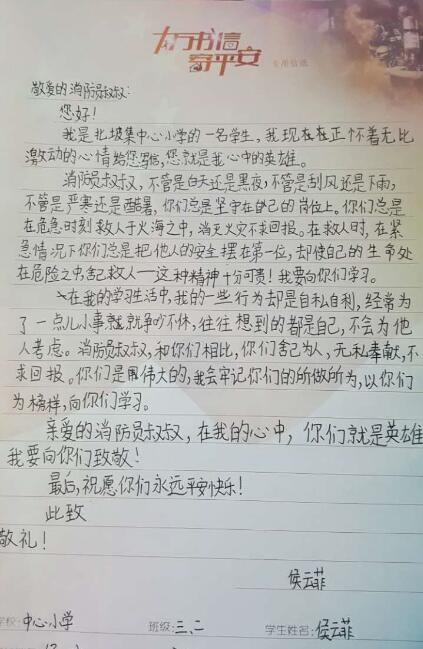 书信
寄平安
专用信纸
敬爱的消防员叔叔:
您好!
我是北坡集中心小学的一名学生,我现在在正个不着无比
激动的心情给您写信,您就是我心中的英雄。
消防员叔叔,不管是白天还是黑夜,不管是刮风还是下雨,
不管是严寒还是酷暑,你们总是坚守在自己的岗位上。你们总是
在危急时刻救人于火海之中,消灭火灾不求回报。在救人时,在紧
急情况下你们总是把他人的安全摆在第一位,却使自己的生命处
在危险之中,舍己救人——这种精神十分可贵!我要向你们学习。
在我的学习生活中,我的一些行为却是自私自利,经常为
了一点儿小事就争吵不休,往往想到的都是自己,不会为他
人考虑。消防员叔叔,和你们相比,你们舍己为人,无私奉献,不
求回报。你们是伟大的,我会牢记你们的所做所为,以你们
为榜样,向你们学习。
亲爱的消防员叔叔,在我的心中,你们就是英雄
我要向你们致敬!
最后,祝愿你们永远平安快乐!
此致
敬礼!
侯云菲
学校:中心小学 班级:三、二 学生姓名:侯云菲